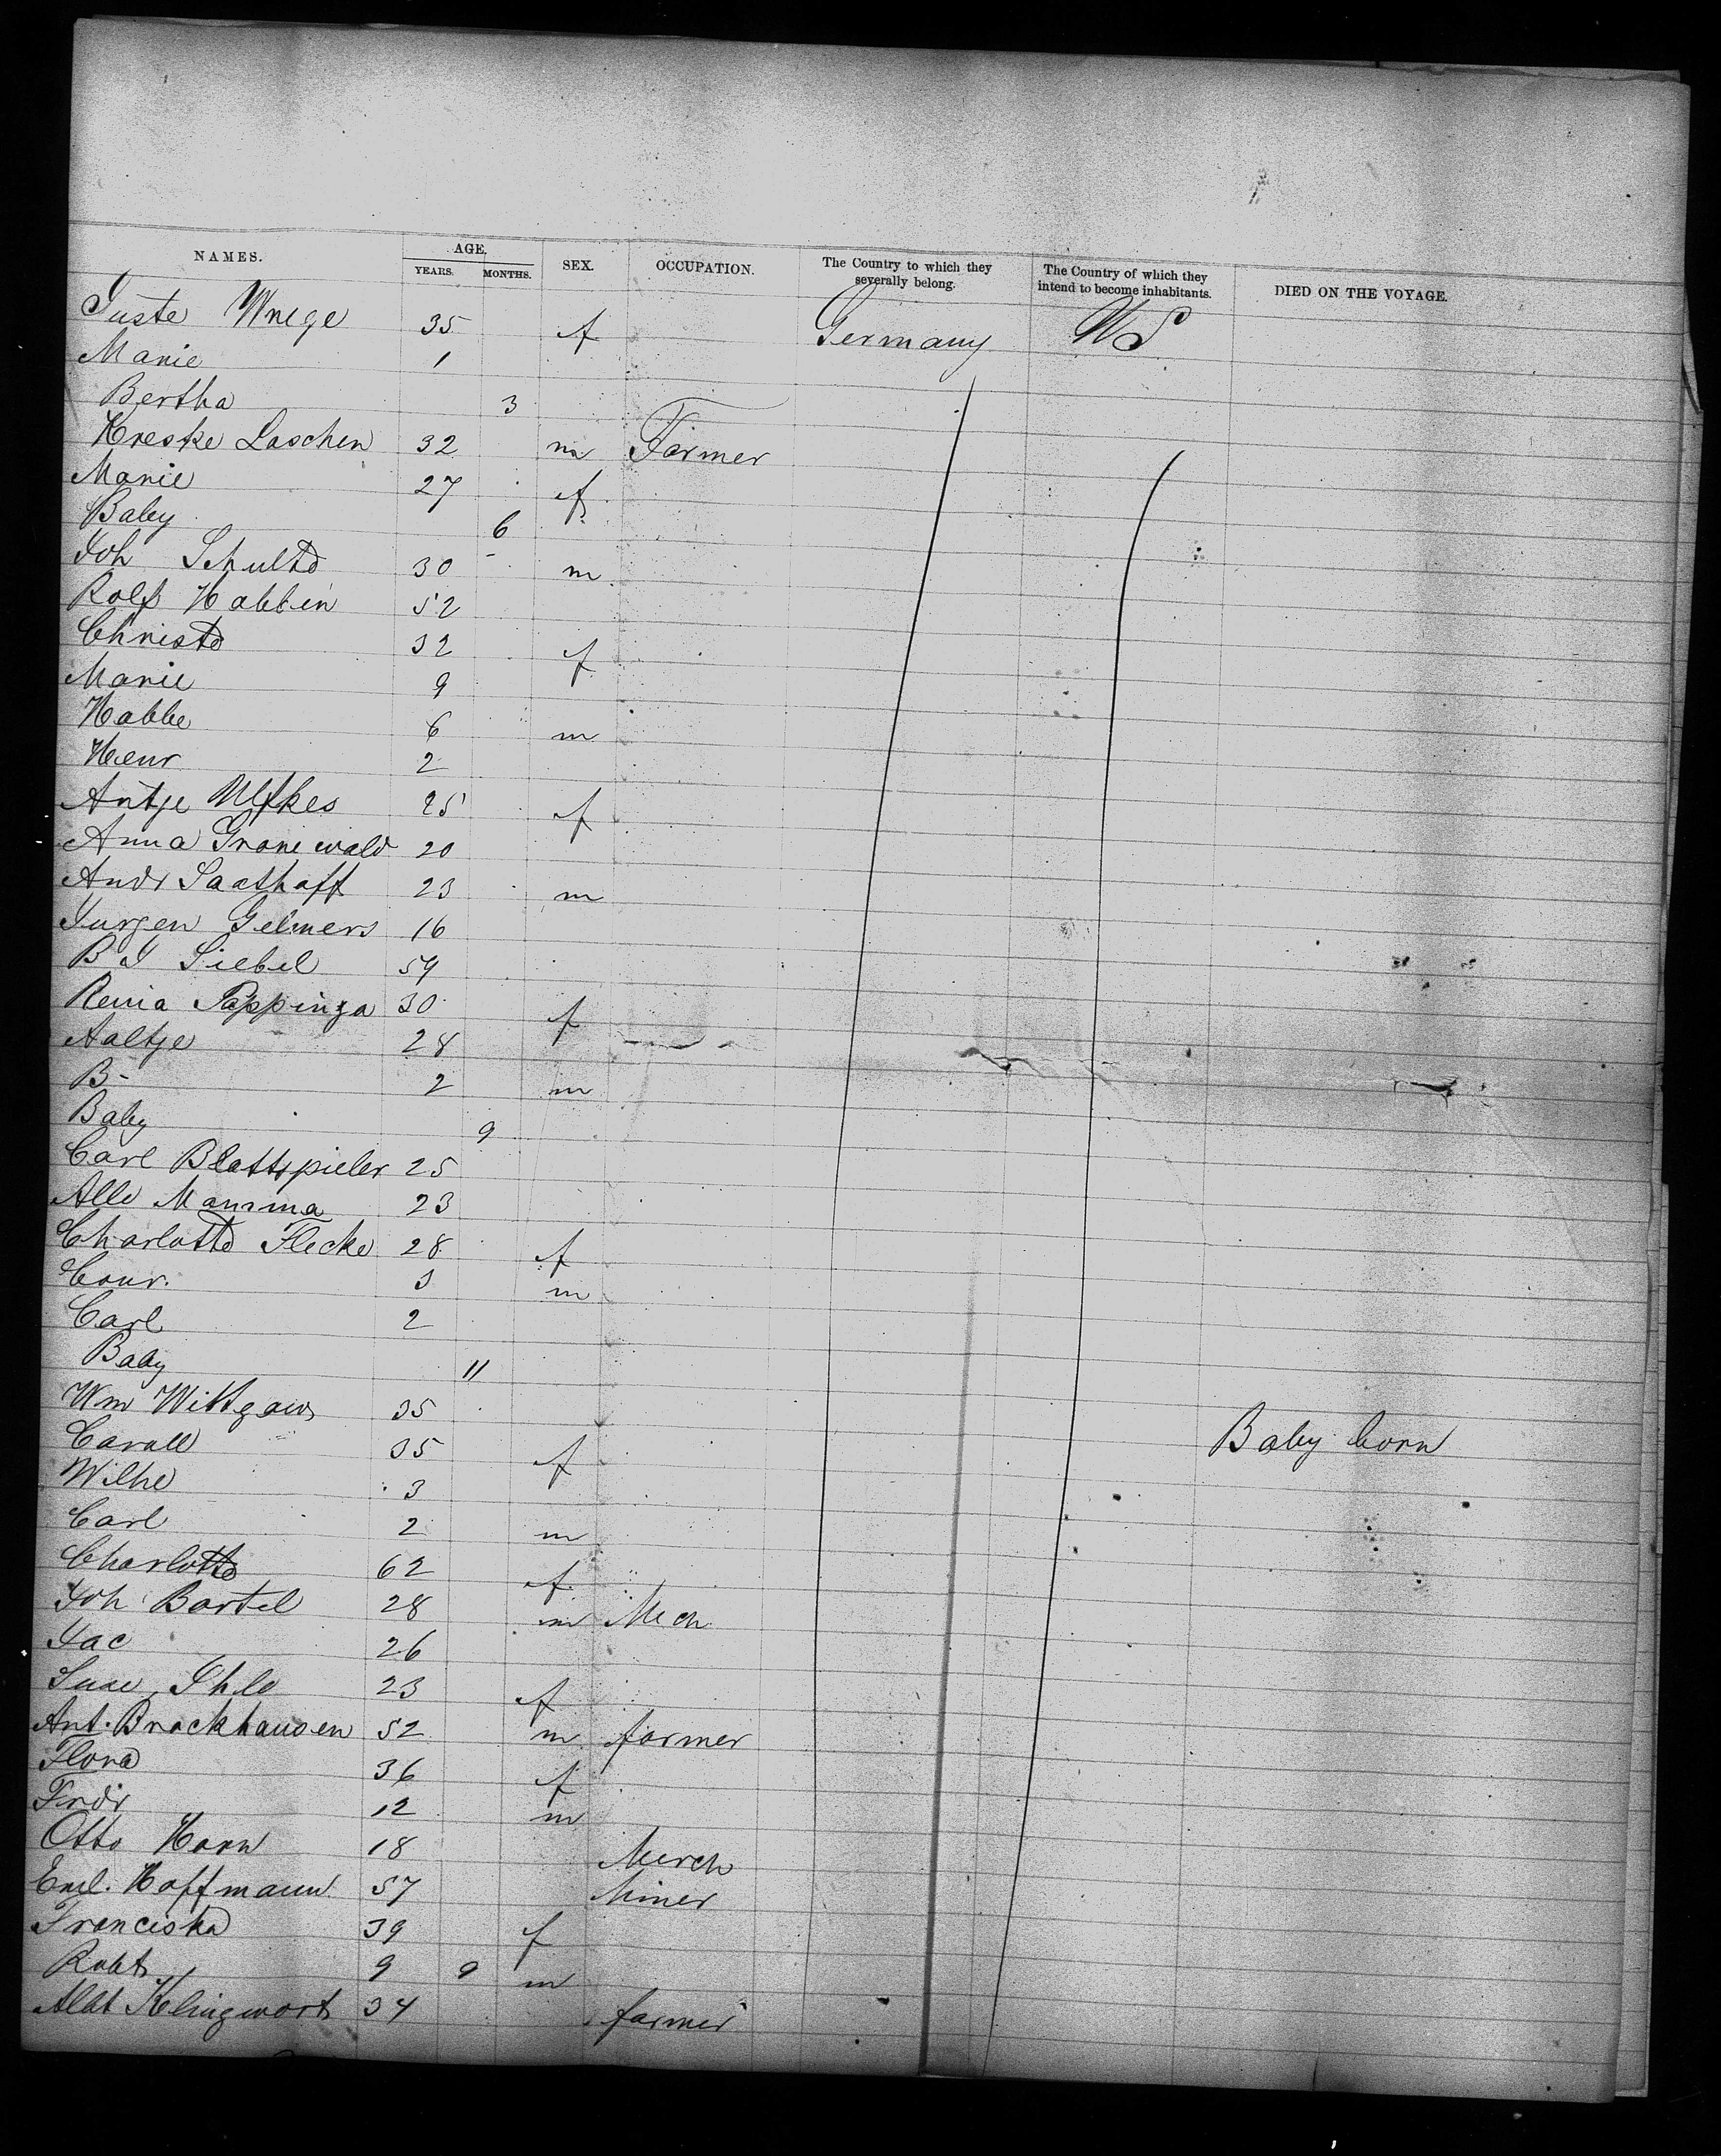 NAMES. AGE. SEX. OCCUPATION. The Country to which they severally belong. The Country of which they intend to become inhabitants. DIED ON THE VOYAGE.
YEARS. MONTHS.
Guste Wnege 35 f Germany US
Marie 1
Bertha 3
Hreske Laschen 32 m Farmer
Marie 27 f
Baby 6
Joh Schultd 30 m
Rolf Habben 52
Christd 32 f
Marie 9
Habbe 6 m
Henr 2
Antje Ulfkes 25 f
Anna Gronewald 20
Andr Saathoff 23 m
Jurgen Gelmers 16
B J Siebel 59
Renia Poppinga 30 f
Aaltje 28
B- 2 m
Baby 9
Carl Blattspieler 25
Alle Mamma 23
Charlotte Flecke 28 f
Conr. 3 m
Carl 2
Baby 11
Wm Wittgaw 35
Caroll 35 f Baby born
Wilhe 3
Carl 2 m
Charlotte 62 f
Joh Bartel 28 m Mech
Jac 26
Suse Ihle 23 f
Ant. Brockhausen 52 m farmer
Flora 36 f
Frdr 12 m
Otto Horn 18 Merch
Emil. Hoffmann 57 Miner
Franciska 39 f
Robt 9 9 m
Albt Klingwort 34 farmer